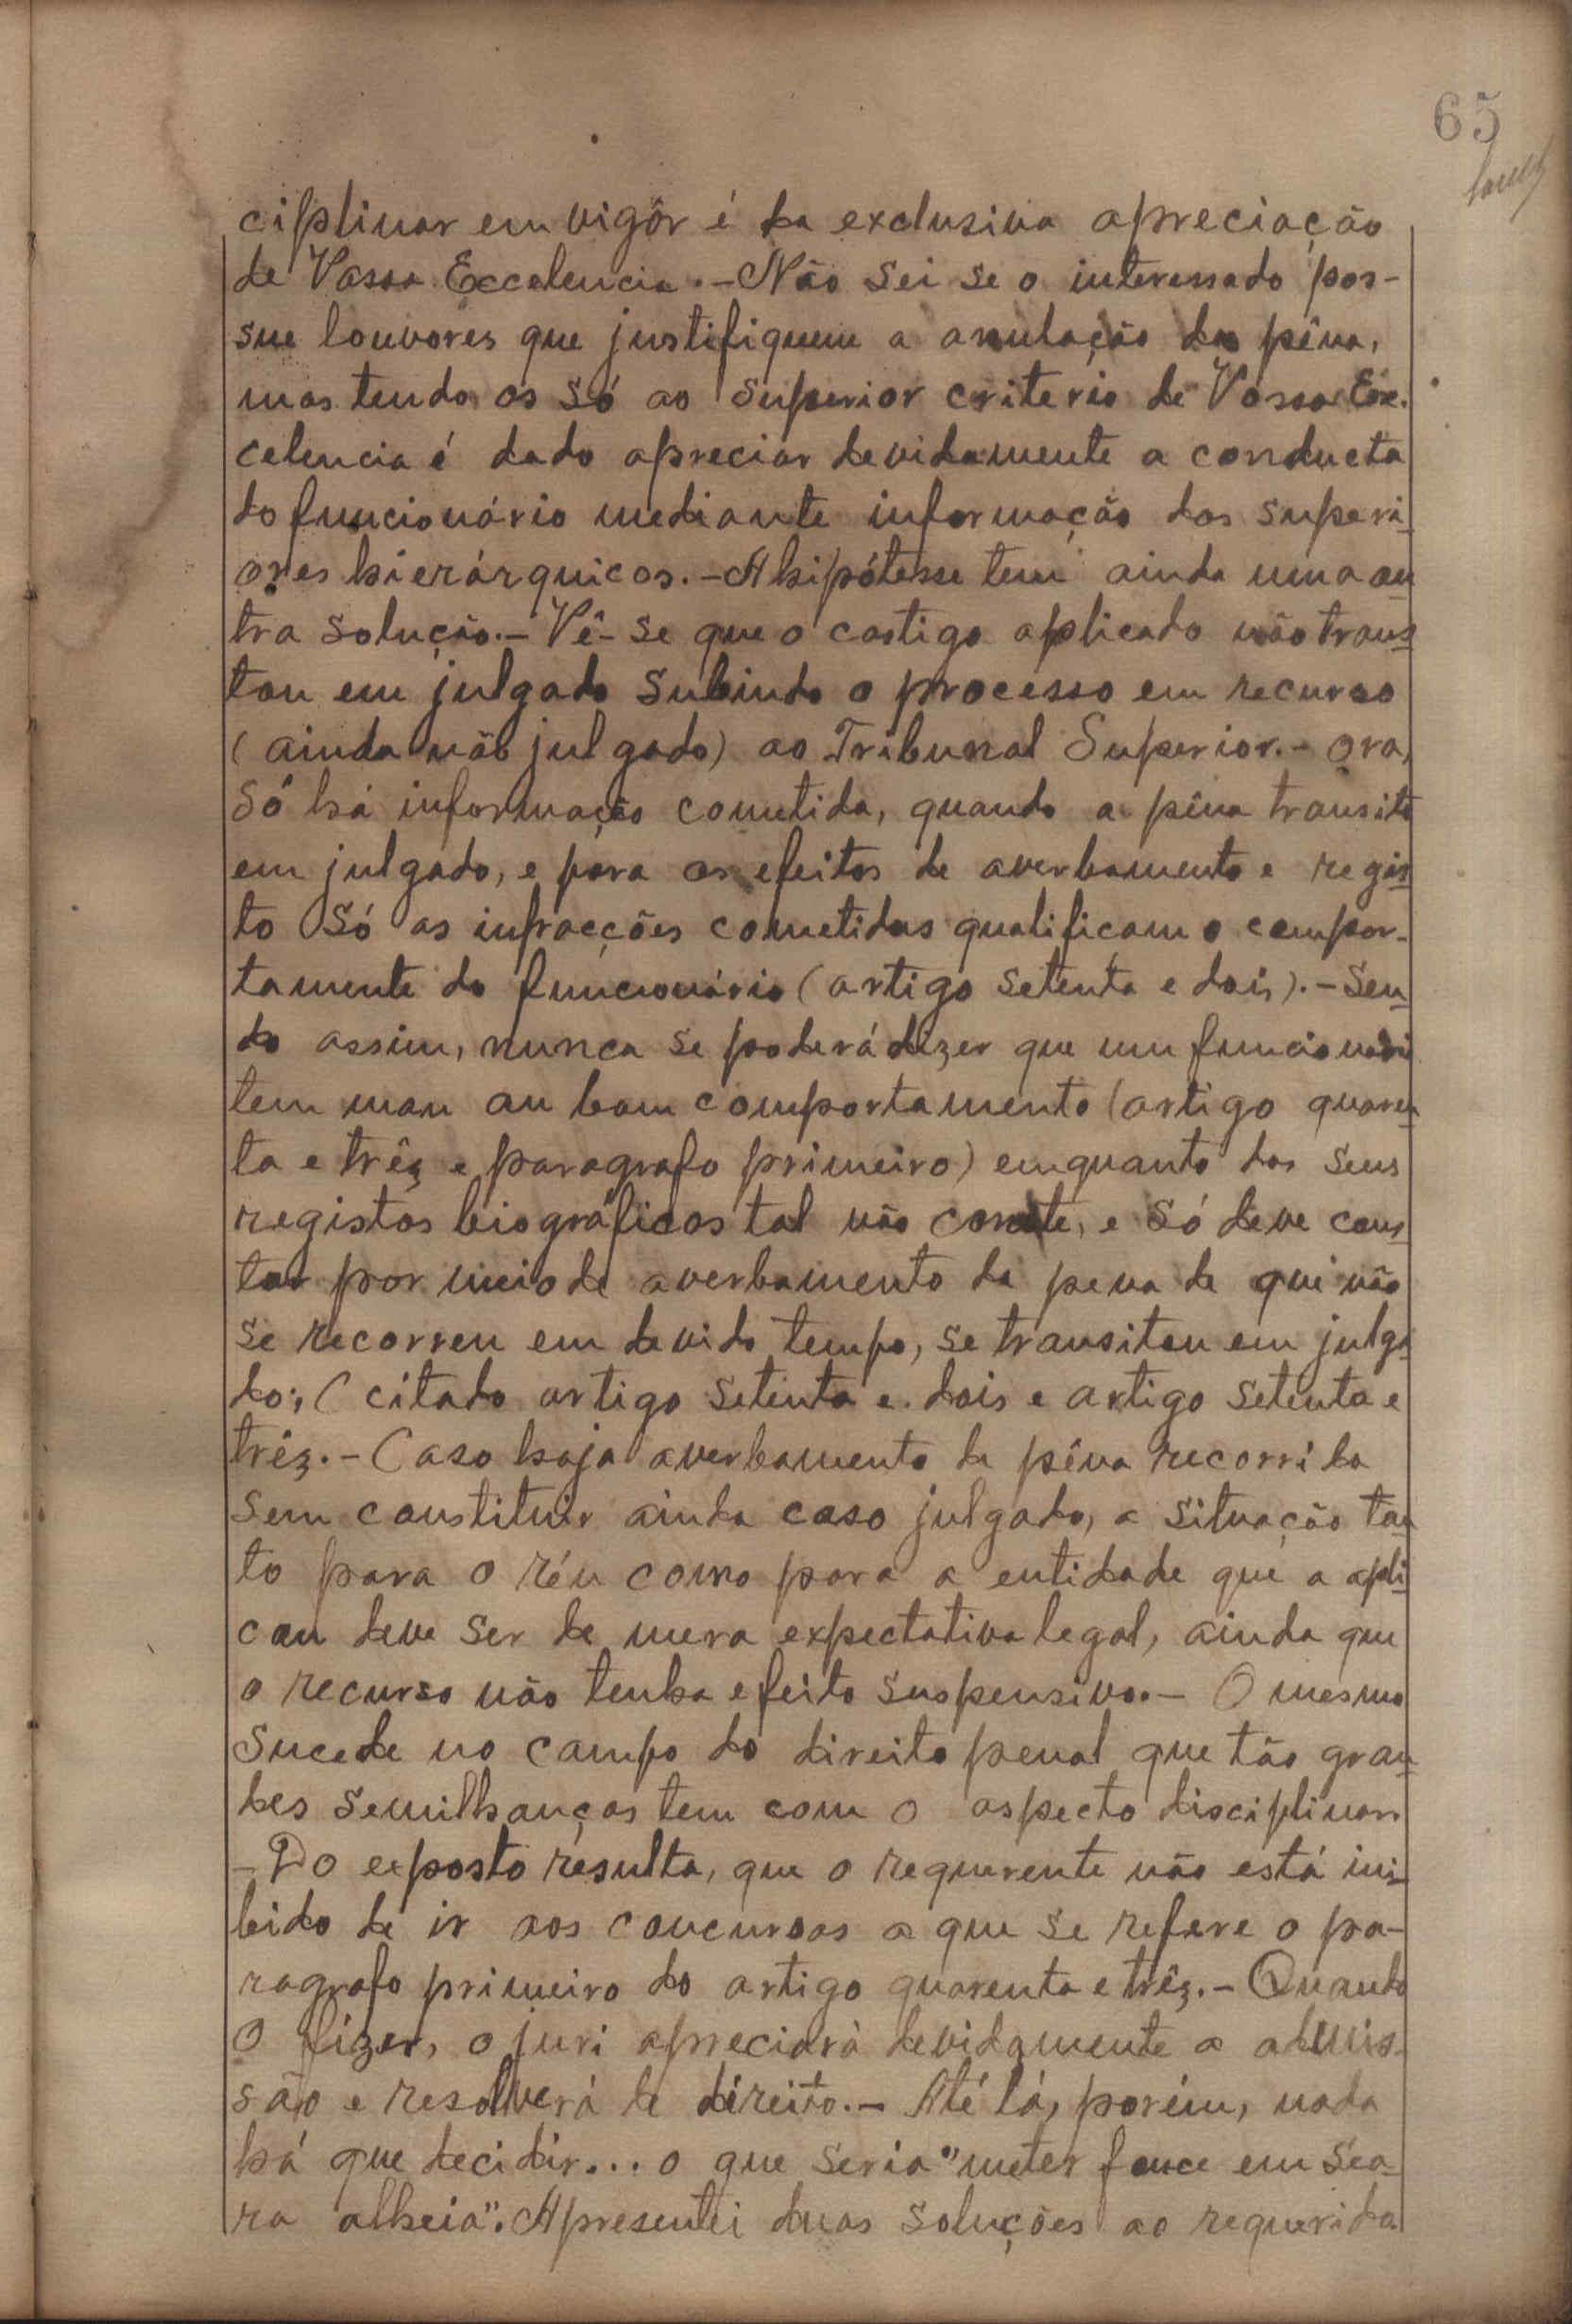 65
ciplinar em vigôr é da exclusiva apreciação
de Vossa Excelencia.- Não sei se o interessado pos-
sue louvores que justifiquem a anulação da pêna,
mas tendo os só ao superior criterio de Vossa Ex-
celencia é dado apreciar devidamente a conducta
do funcionário mediante informação dos superi-
ores hierárquicos.- A hipótesse tem ainda uma ou
tra solução.- Vê-se que o castigo aplicado não trans
tou em julgado subindo o processo em recurso
(ainda não julgado) ao Tribunal Superior.- Ora,
só há informação cometida, quando a pêna transite
em julgado, e para os efeitos de averbamento e regis
to só as infracções cometidas qualificam o compor-
tamente do funcionário (artigo setenta e dois).- Sen
do assim, nunca se poderá dizer que um funcionári
tem mau ou bom comportamento (artigo quaren
ta e trêz e paragrafo primeiro) emquanto dos seus
registos biográficos tal não conste, e só deve cons
tar por meio de averbamento da pena de que não
se recorreu em devido tempo, se transitou em julga
do; (citado artigo setenta e dois e artigo setenta e
trêz.- Caso haja averbamento da pêna recorrida
sem constituir ainda caso julgado, a situação tan
to para o réu como para a entidade que a apli
cou deve ser de mera expectativa legal, ainda que
o recurso não tenha efeito suspensivo.- O mesmo
sucede no campo do direito penal que tão gran
des semilhanças tem com o aspecto disciplinar
- Do exposto resulta, que o requerente não está ini
bido de ir aos concursos a que se refere o pa-
ragrafo primeiro do artigo quarenta e trêz.- Quando
o fizer, o juri apreciará devidamente a admis-
são e resolverá de direito.- Até lá, porém, nada
há que decidir... o que seria "meter fouce em sea-
ra alheia". Apresentei duas soluções ao requerida